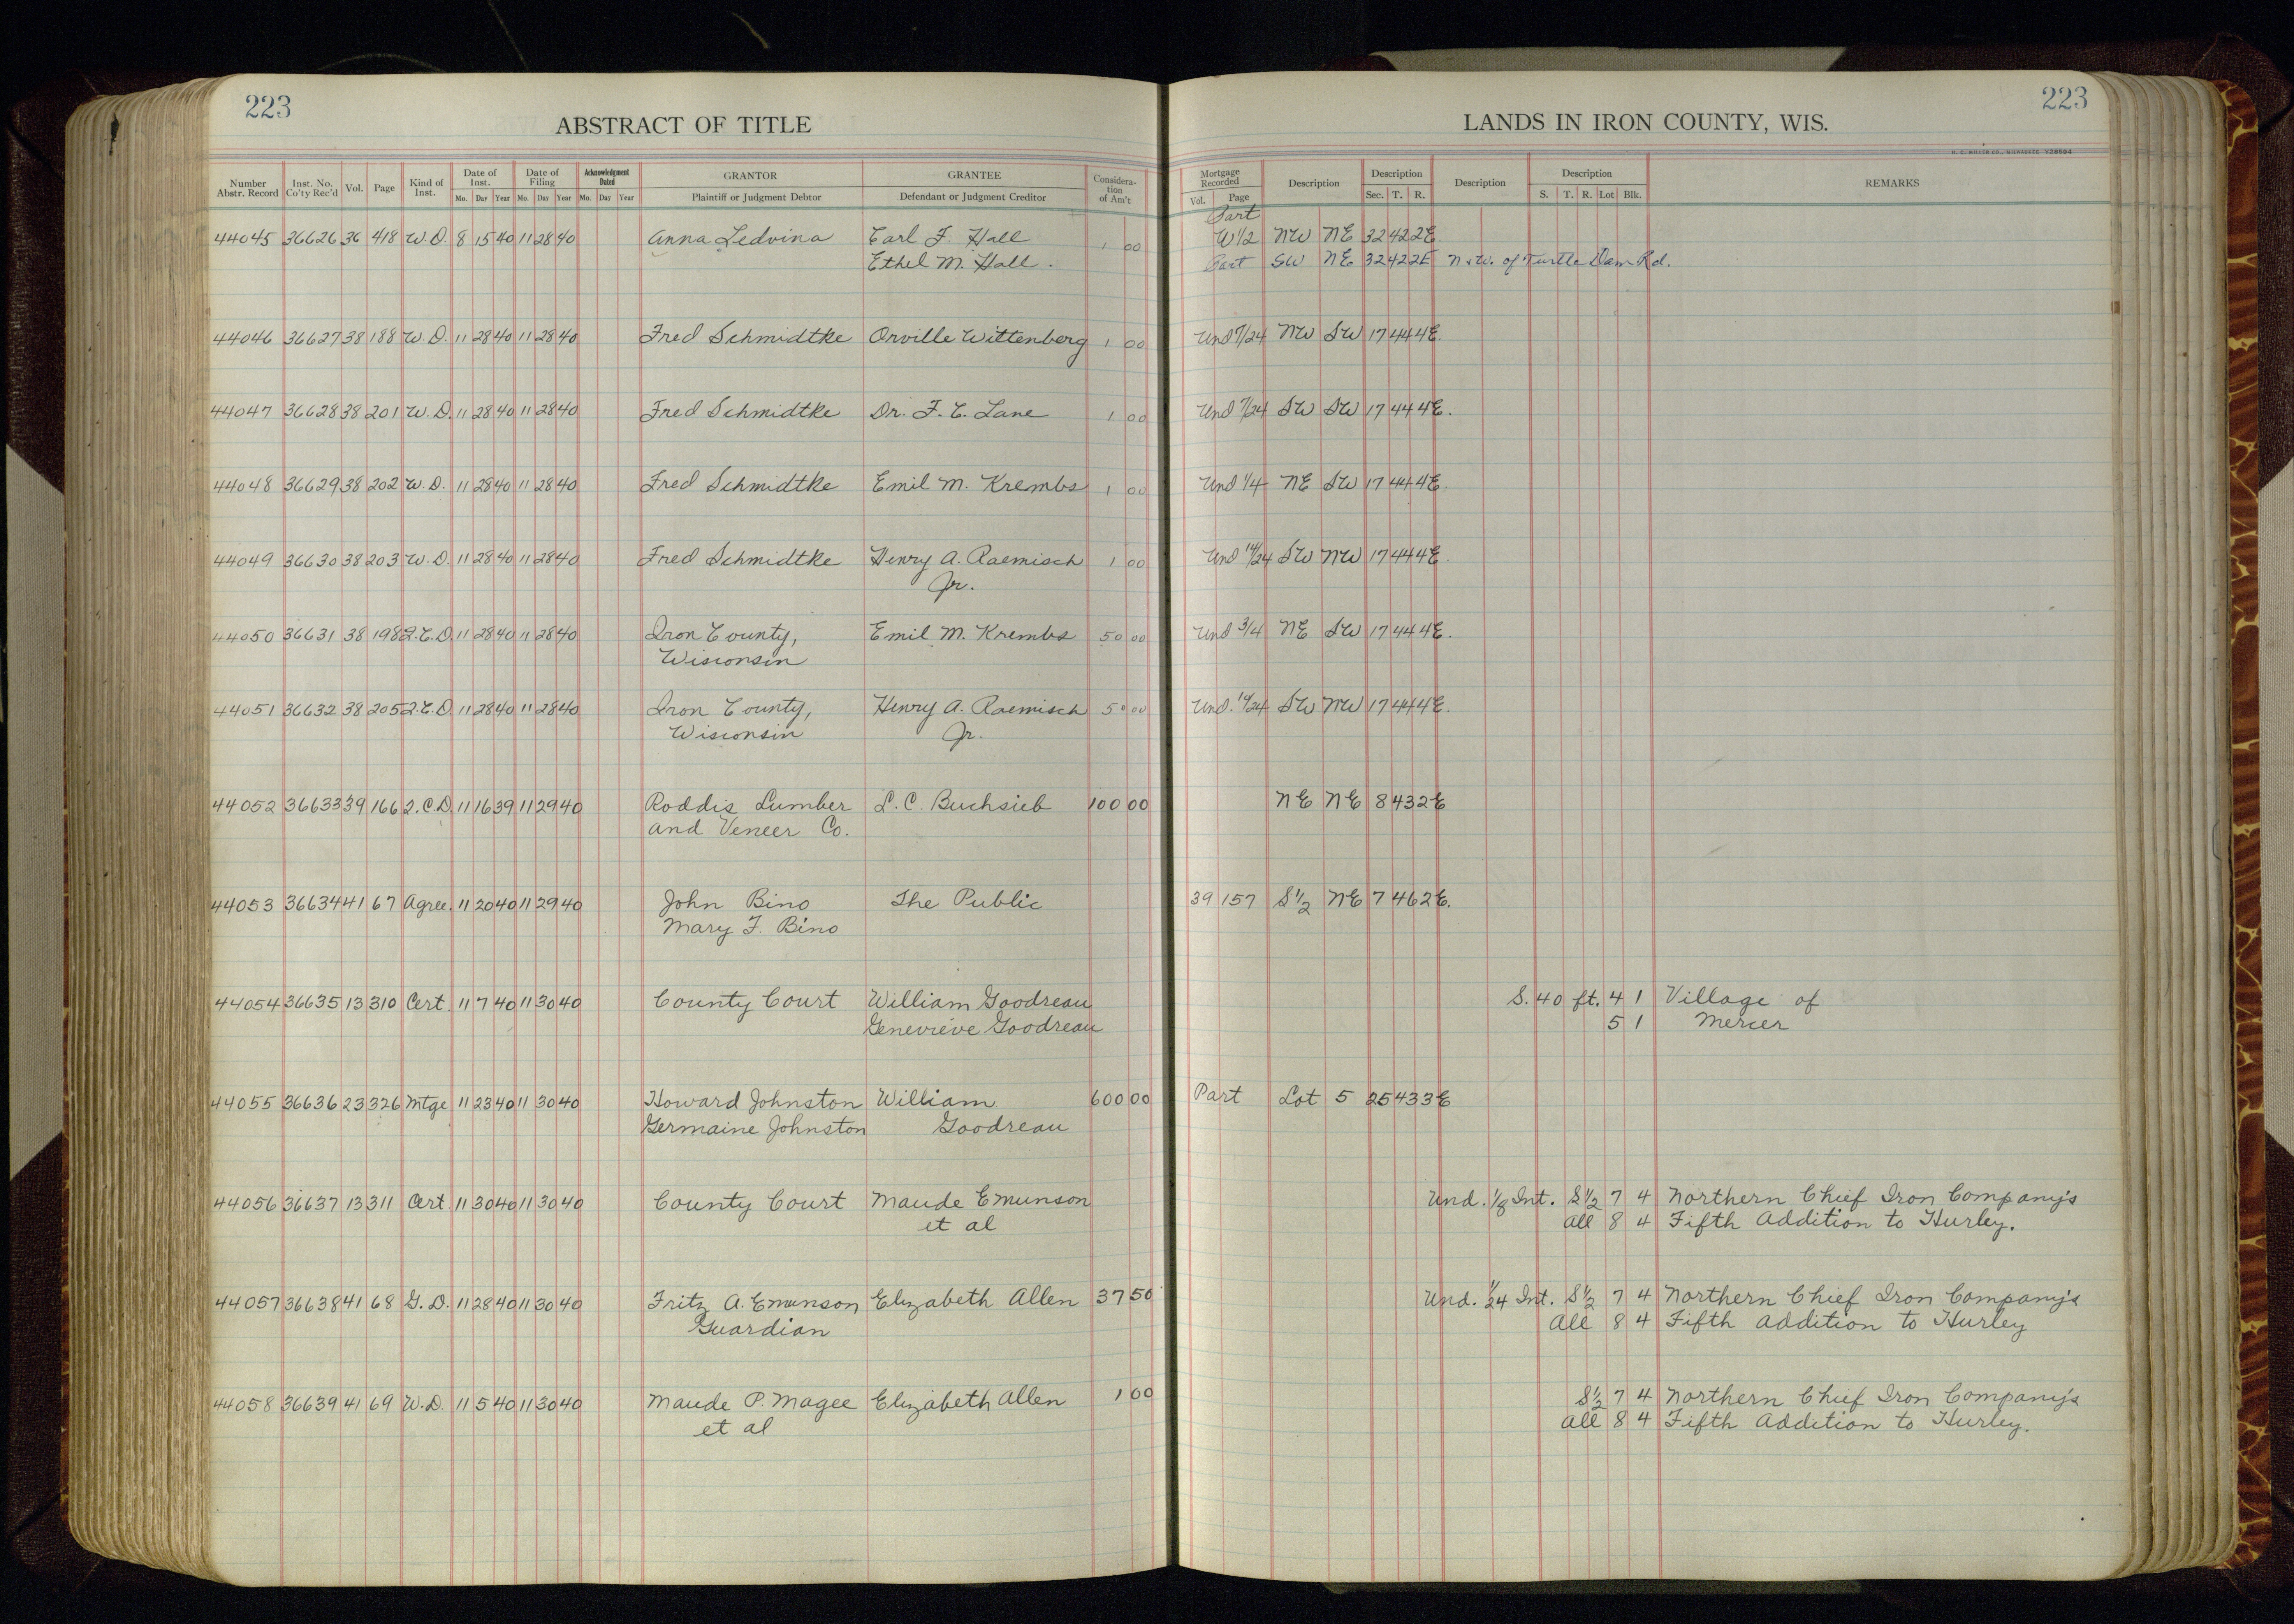 223
ABSTRACT OF TITLE
LANDS IN IRON COUNTY, WIS.
223
Number Abstr. Record Inst. No. Co'ty Rec'd Vol. Page Kind of Inst. Date of Inst. Mo. Day Year Date of Filing Mo. Day Year Acknowledgment Dated Mo. Day Year GRANTOR Plaintiff or Judgment Debtor GRANTEE Defendant or Judgment Creditor Consideration of Am't Mortgage Recorded Vol. Page Description Description Sec. T. R. Description Description S. T. R. Lot Blk. REMARKS
Part
44045 36626 36 418 W.D. 8 15 40 11 28 40 Anna Ledvina Earl F. Hall 1 00 W 1/2 NW NE 32 42 2E
Ethel M. Hall. Part SW NE 32 42 2E N & W. of Turtle Dam Rd.
44046 36627 38 188 W.D. 11 28 40 11 28 40 Fred Schmidtke Orville Wittenberg 1 00 Und 7/24 NW SW 17 44 4E.
44047 36628 38 201 W.D. 11 28 40 11 28 40 Fred Schmidtke Dr. F. C. Lane 1 00 Und 7/24 SW SW 17 44 4E.
44048 36629 38 202 W.D. 11 28 40 11 28 40 Fred Schmidtke Emil M. Krembs 1 00 Und 1/4 NE SW 17 44 4E.
44049 36630 38 203 W.D. 11 28 40 11 28 40 Fred Schmidtke Henry A. Raemisch 1 00 Und 14/24 SW NW 17 44 4E.
Jr.
44050 36631 38 198 Q.C.D. 11 28 40 11 28 40 Iron County, Emil M. Krembs 50 00 Und 3/4 NE SW 17 44 4E.
Wisconsin
44051 36632 38 205 Q.C.D. 11 28 40 11 28 40 Iron County, Henry A. Raemisch 50 00 Und. 14/24 SW NW 17 44 4E.
Wisconsin Jr.
44052 36633 39 166 Q.C.D. 11 16 39 11 29 40 Roddis Lumber L. C. Buchsieb 100 00 NE NE 8 43 2E
and Veneer Co.
44053 36634 41 67 Agree. 11 20 40 11 29 40 John Bino The Public 39 157 S 1/2 NE 7 46 2E.
Mary F. Bino
44054 36635 13 310 Cert. 11 7 40 11 30 40 County Court William Goodreau S. 40 ft. 4 1 Village of
Genevieve Goodreau 5 1 Mercer
44055 36636 23 326 Mtge 11 23 40 11 30 40 Howard Johnston William 600 00 Part Lot 5 25 43 3E
Germaine Johnston Goodreau
44056 36637 13 311 Cert. 11 30 40 11 30 40 County Court Maude Emunson Und. 1/8 Int. S 1/2 7 4 Northern Chief Iron Company's
et al All 8 4 Fifth Addition to Hurley.
44057 36638 41 68 G.D. 11 28 40 11 30 40 Fritz A. Emunson Elizabeth Allen 37 50 Und. 1/24 Int. S 1/2 7 4 Northern Chief Iron Company's
Guardian All 8 4 Fifth Addition to Hurley
44058 36639 41 69 W.D. 11 5 40 11 30 40 Maude P. Magee Elizabeth Allen 1 00 S 1/2 7 4 Northern Chief Iron Company's
et al All 8 4 Fifth Addition to Hurley.